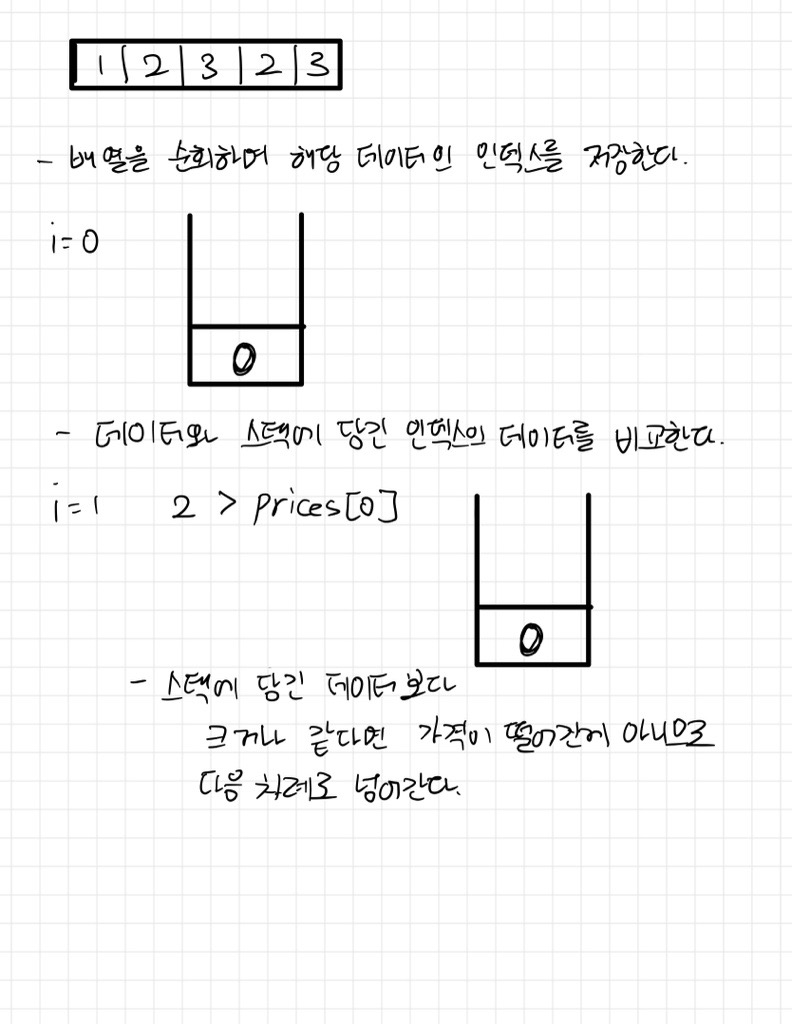 1 | 2 | 3 | 2 | 3
- 배열을 순회하며 해당 데이터의 인덱스를 저장한다.
i=0
0
- 데이터와 스택에 담긴 인덱스의 데이터를 비교한다.
i=1 2 > prices[0]
0
- 스택에 담긴 데이터보다
크거나 같다면 가격이 떨어간게 아니므로
다음 차례로 넘어간다.